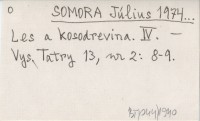 O
SOMORA Július 1974...
Les a kosodrevina. IV. —
Vys. Tatry 13, nr 2: 8-9.